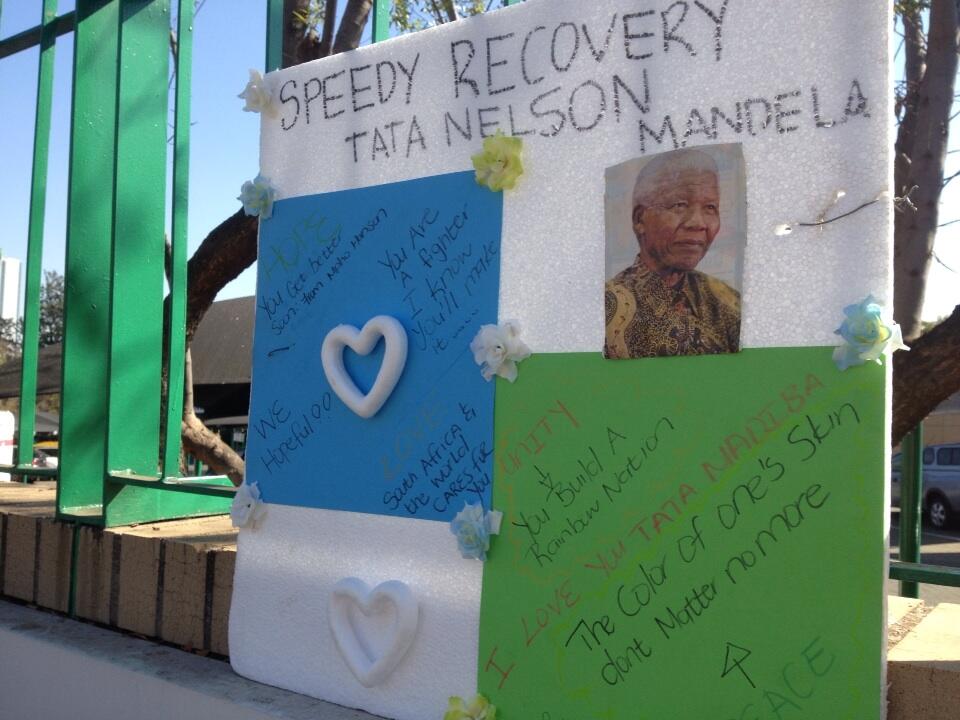 SPEEDY RECOVERY
TATA NELSON MANDELA
HOPE
You Get better
Soon. from
You Are
A fighter
I know
You'll make
it
WE
Hopeful
LOVE
South Africa &
the World
CARES for
you
UNITY
You Build A
Rainbow Nation
I LOVE YOU TATA MADIBA
The Color of one's Skin
dont Matter no more